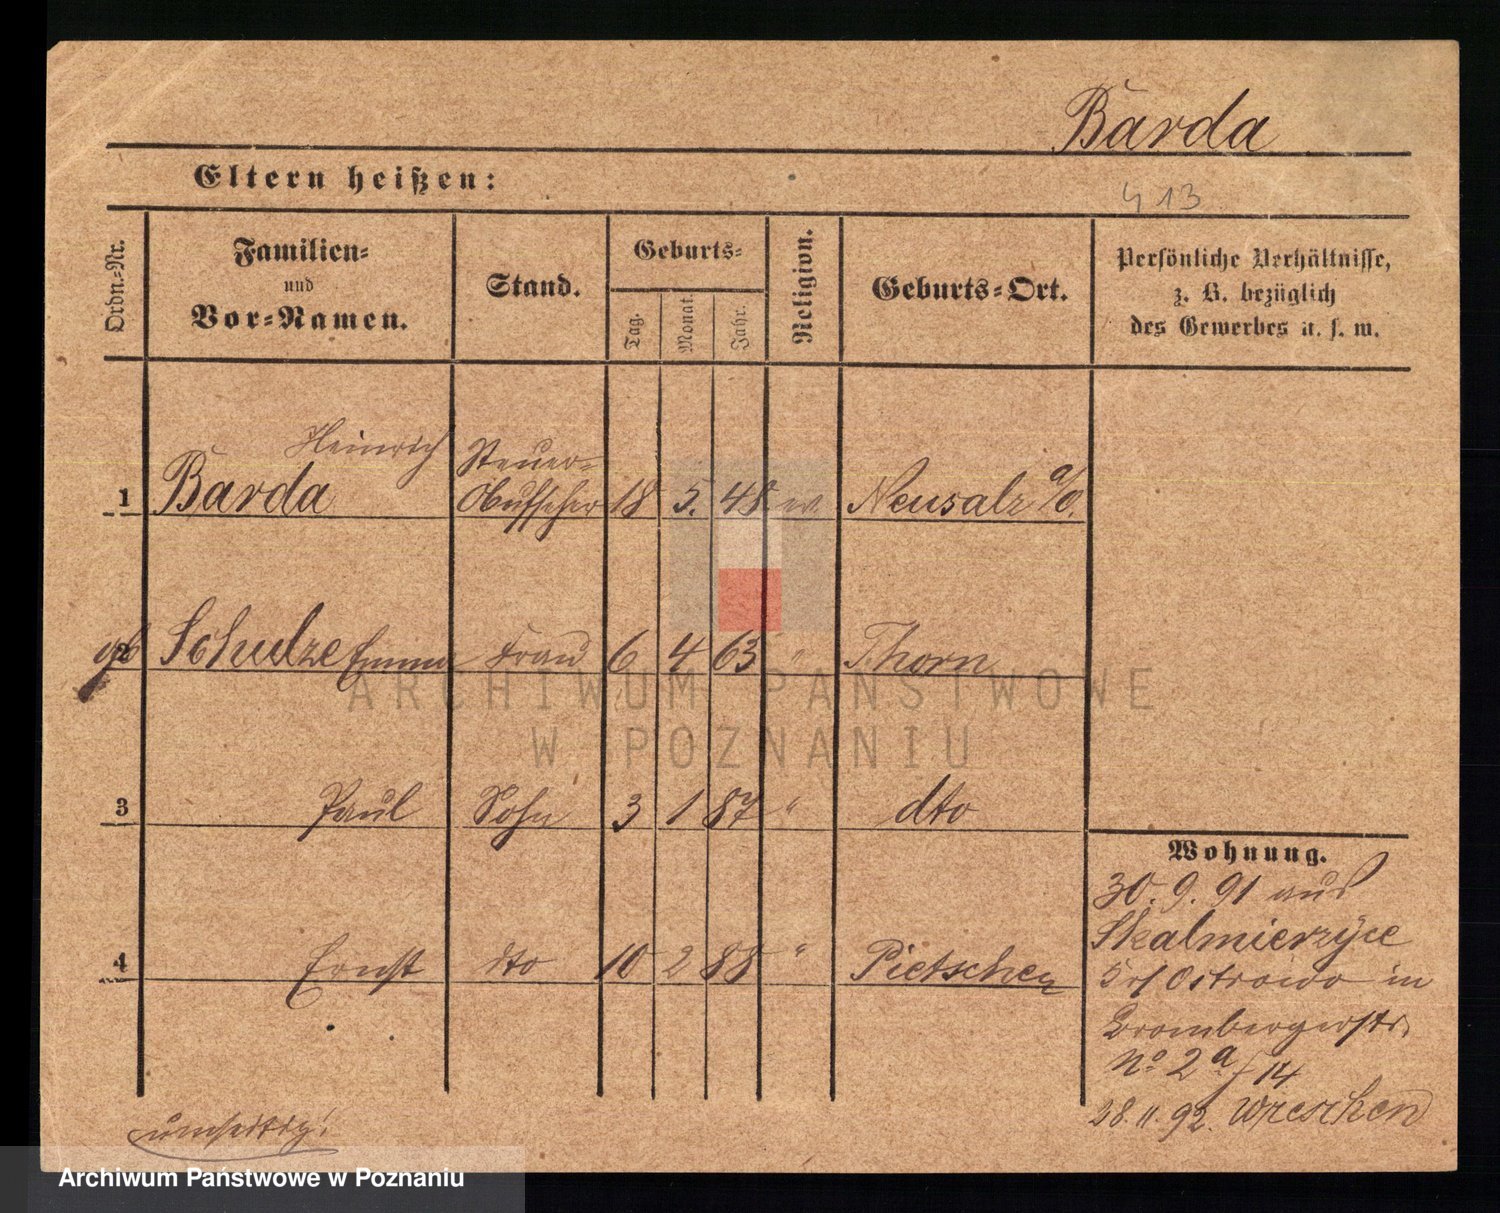 Barda
Eltern heißen:
413
Ordn.-Nr.
Familien-
und
Vor-Namen.
Stand.
Geburts-
Tag.
Monat.
Jahr.
Religion.
Geburts-Ort.
Persönliche Verhältnisse,
z. B. bezüglich
des Gewerbes u. s. w.
Heinrich Steuer-
1 Barda Aufseher 18 5. 48 ev. Neusalz a/O.
2 gb Schulze Emma Frau 6 4 63 " Thorn
3 Paul Sohn 3 1 87 " dto
4 Ernst dto 10 2 88 " Pietschen
Wohnung.
30. 9. 91 aus
Skalmierzyce
Ostrowo in
Brombergerstr.
No 2a f 14
28. 11. 92. Wreschen
umseitig!
ARCHIWUM PAŃSTWOWE
W POZNANIU
Archiwum Państwowe w Poznaniu